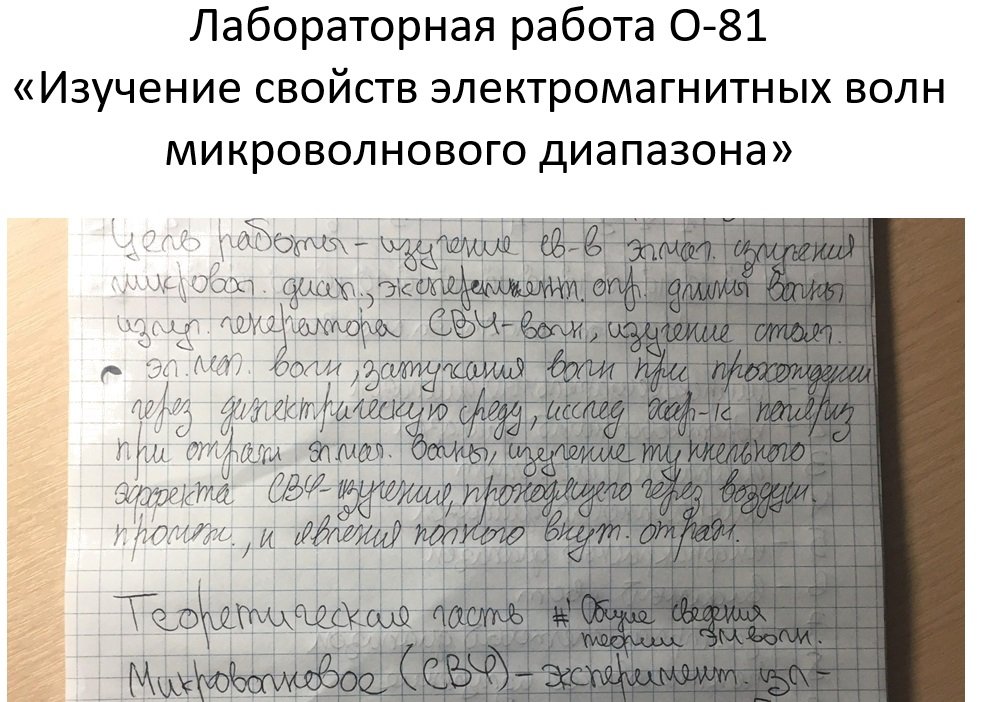 Лабораторная работа О-81
«Изучение свойств электромагнитных волн
микроволнового диапазона»
Цель работы - изучение св-в эл.маг. излучения
микровол. диап., эксперимент. опр. длины волны
излуч. генератора СВЧ-волн, изучение стояч.
эл.маг. волн, затухания волн при прохождении
через диэлектрическую среду, исслед хар-к поляриз
при отраж эл.маг. волны, изучение туннельного
эффекта СВЧ-излучения, проходящего через воздуш.
промеж., и явления полного внут. отраж.
Теоретическая часть # Общие сведения
теории ЭМ волн.
Микроволновое (СВЧ) - эксперимент. изл-